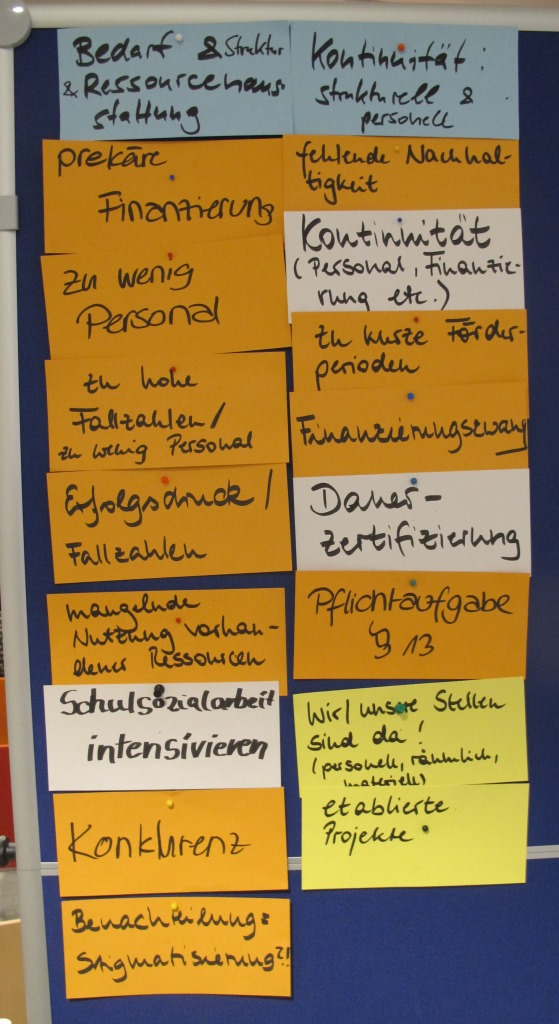 Bedarf & Struktur
& Ressourcenaus
stattung
prekäre
Finanzierung
zu wenig
Personal
zu hohe
Fallzahlen/
zu wenig Personal
Erfolgsdruck/
Fallzahlen
mangelnde
Nutzung vorhan-
dener Ressourcen
Schulsozialarbeit
intensivieren
Konkurenz
Benachteilung:
Stigmatisierung?!
Kontinuität:
strukturell &
personell
fehlende Nachhal-
tigkeit
Kontinuität
(Personal, Finanzie-
rung etc.)
zu kurze Förder-
perioden
Finanzierungszwang
Dauer-
zertifizierung
Pflichtaufgabe
§ 13
Wir/unsere Stellen
sind da!
(personell, räumlich,
materiell)
etablierte
Projekte